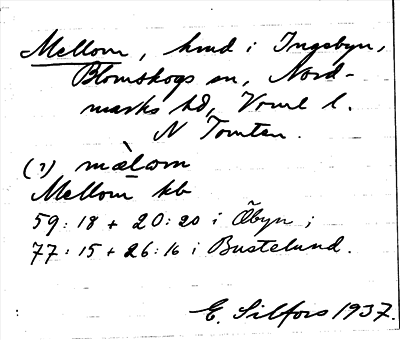 Mellom, hmd i Ingebyn,
Blomskogs sn, Nord-
marks hd, Vrml l.
N Tomten.
(?) màlɷm
Mellom kb
59:18 + 20:20 i Öbyn;
77:15 + 26:16 i Bustelund.
E. Silfors 1937.